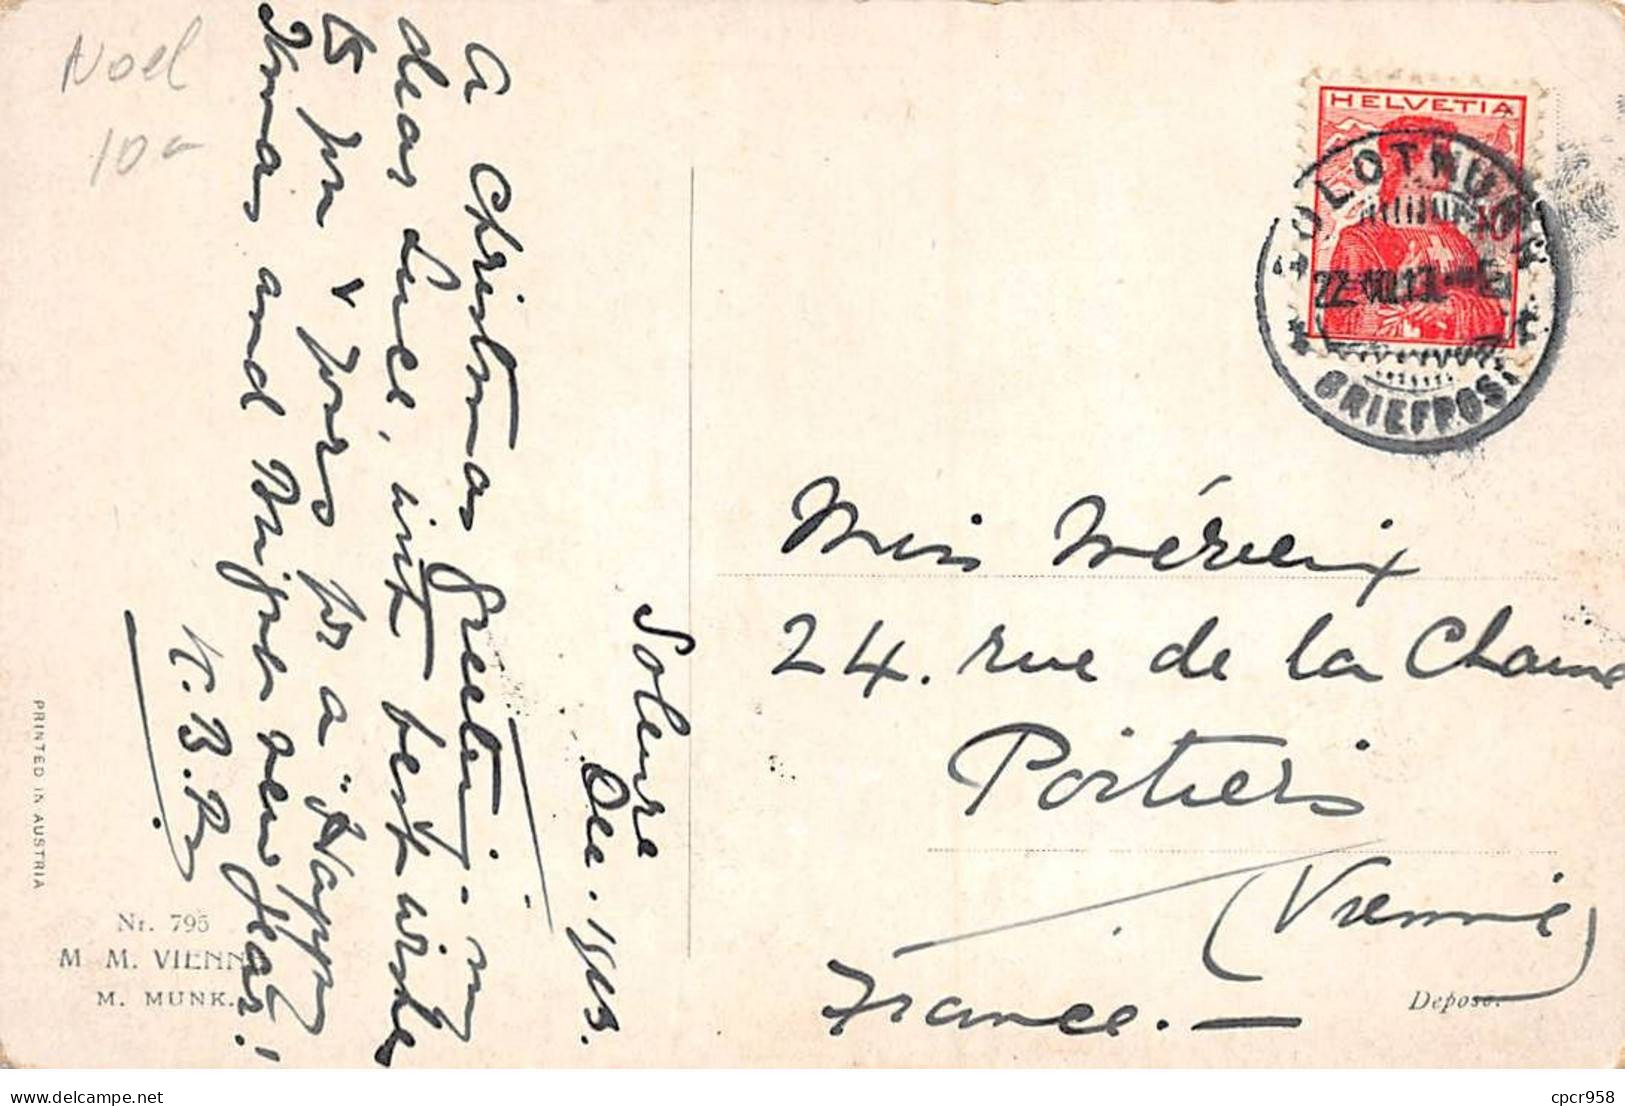 Noel
10-
Soleure
Dec. 1913.
A Christmas greeting - my
dear Luce, with best wishes
to you & yours for a "Happy
Xmas and Bright new Year"!
K.B.B.
HELVETIA
10
SOLOTHURN
22.XII.13.
BRIEFPOST
Miss Mérieux
24. rue de la Chaine
Poitiers
(Vienne)
France. —
PRINTED IN AUSTRIA
Nr. 795
M. M. VIENNE
M. MUNK.
Deposé.
www.delcampe.net
cpcr958